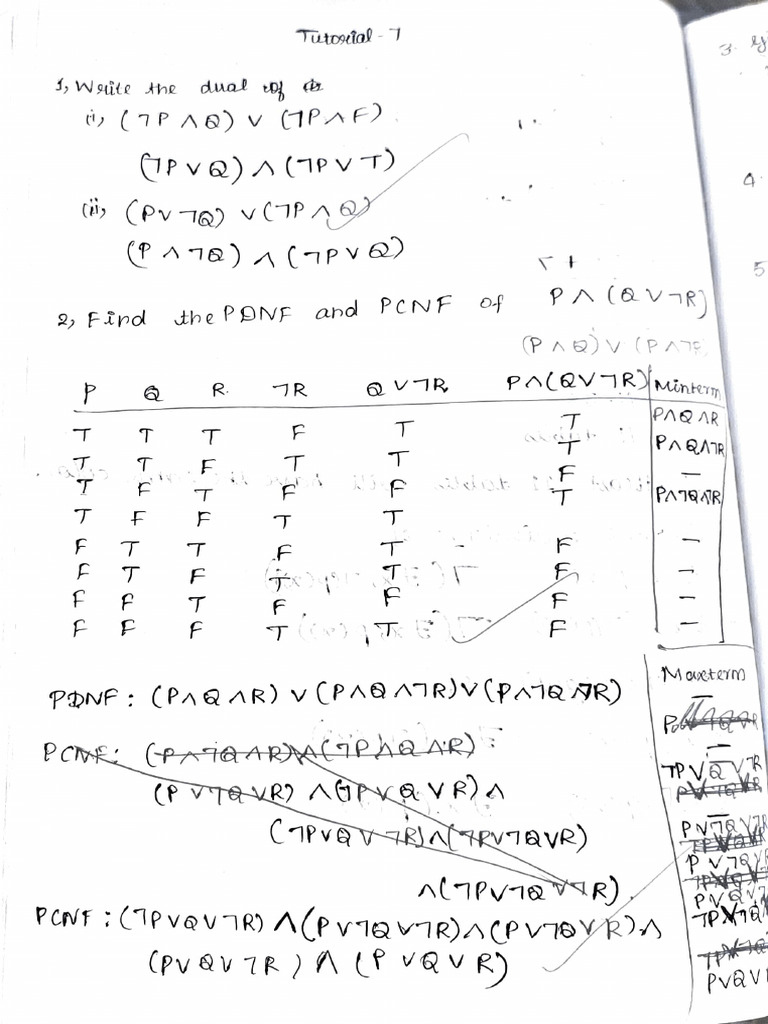 Tutorial - 7
1, Write the dual of
(i), (¬P ∧ Q) ∨ (¬P ∧ F)
(¬P ∨ Q) ∧ (¬P ∨ T)
(ii), (P ∨ ¬Q) ∨ (¬P ∧ Q)
(P ∧ ¬Q) ∧ (¬P ∨ Q)
2, Find the PDNF and PCNF of P ∧ (Q ∨ ¬R)
(P ∧ Q) ∨ (P ∧ ¬R)
P Q R ¬R Q ∨ ¬R P ∧ (Q ∨ ¬R) Minterm
T T T F T T P∧Q∧R
T T F T T T P∧Q∧¬R
T F T F F F —
T F F T T T P∧¬Q∧¬R
F T T F T F —
F T F T T F —
F F T F F F —
F F F T T F —
Maxterm
PDNF : (P∧Q∧R) ∨ (P∧Q∧¬R) ∨ (P∧¬Q∧¬R)
PCNF : (P∧¬Q∧R) ∧ (¬P∧Q∧R) :
(P ∨ ¬Q ∨ R) ∧ (¬P ∨ Q ∨ R) ∧
(¬P∨Q∨¬R) ∧ (¬P∨¬Q∨R)
∧ (¬P∨¬Q∨¬R)
¬P∨Q∨¬R
P∨¬Q∨¬R
P∨¬Q∨R
PCNF : (¬P∨Q∨¬R) ∧ (P∨¬Q∨¬R) ∧ (P∨¬Q∨R) ∧
(P∨Q∨¬R) ∧ (P∨Q∨R)